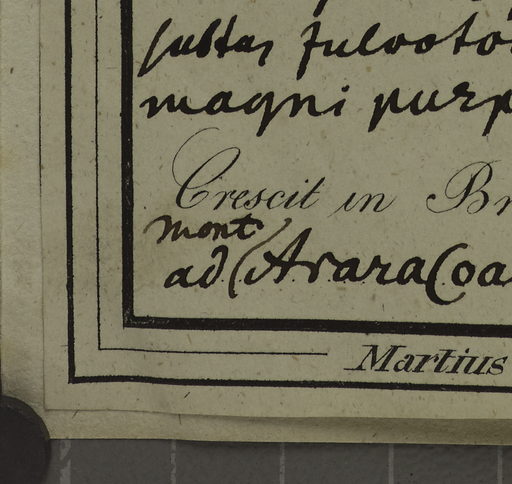 subtus fulvoto
magni purp
Crescit in Br
mont
ad AraraCoa
Martius